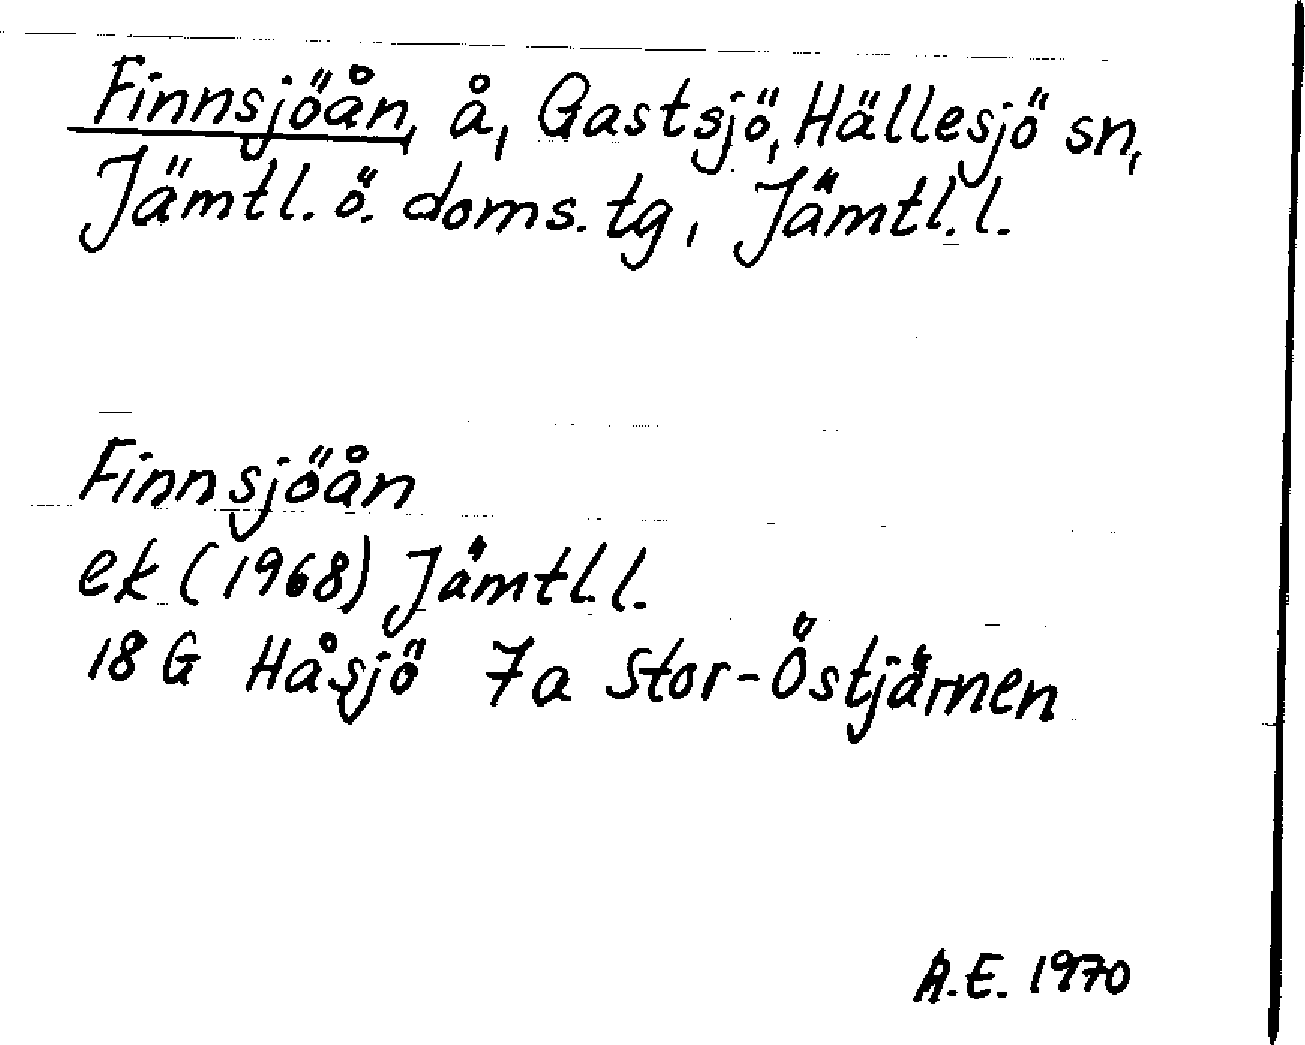 Finnsjöån, å, Gastsjö, Hällesjö sn,
Jämtl. ö. doms. tg, Jämtl. l.
Finnsjöån
ek (1968) Jämtl. l.
18 G Håsjö 7a Stor-Östjärnen
A.E. 1970